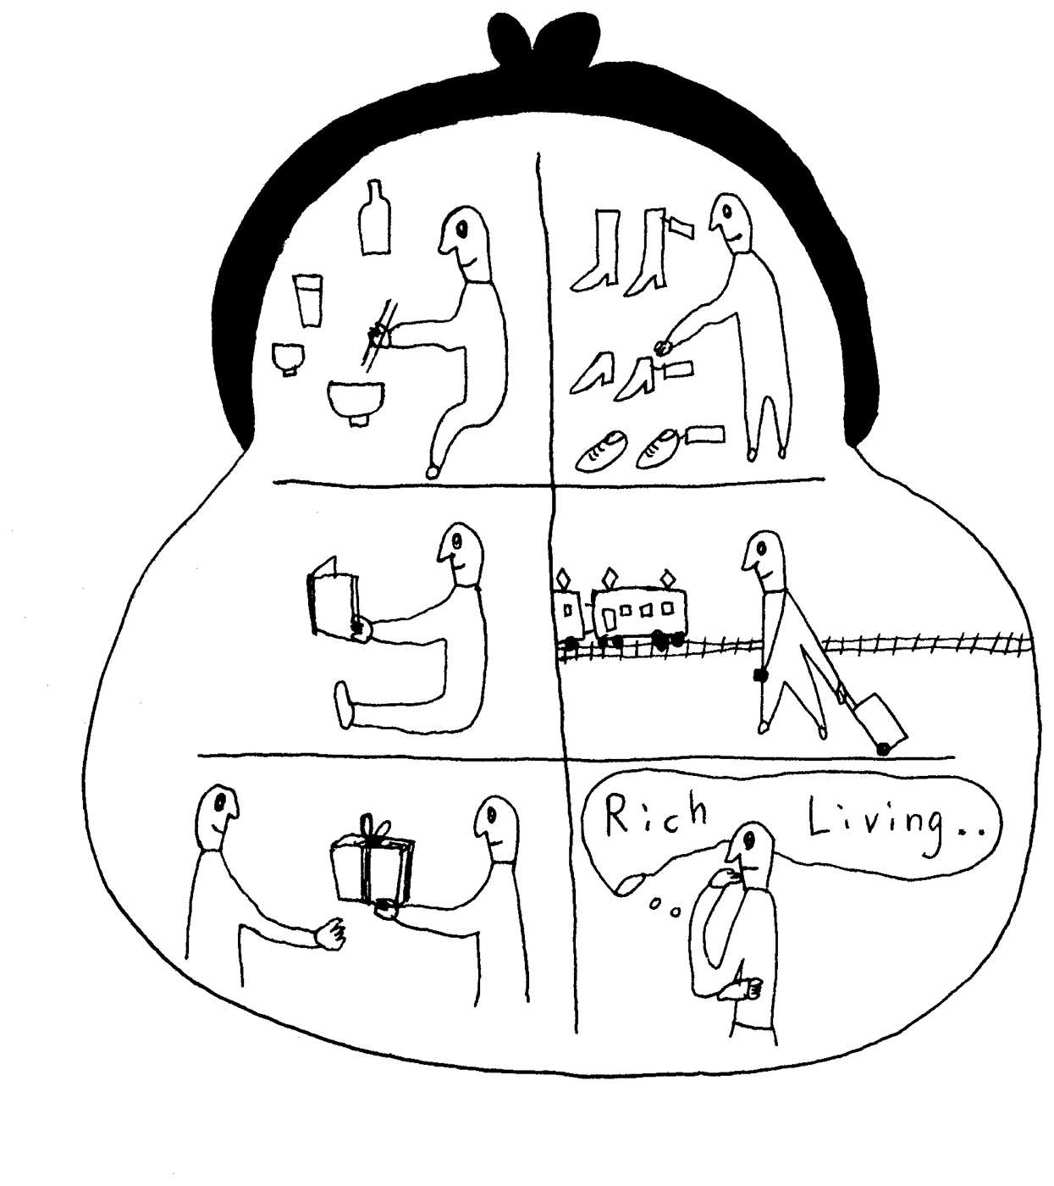 Rich Living..